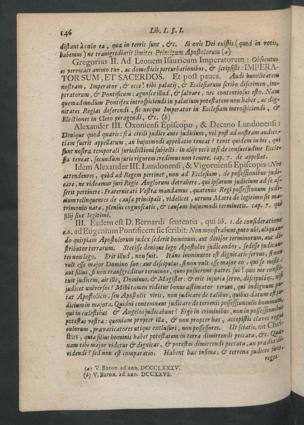 146 Lib. I. §. I.
distant à cælo ea, quæ in terris sunt, &c. Si eris Dei existis (quod in votis,
habemus) ne transgrediaris limites Principum Apostolorum (a)
Gregorius II. Ad Leonem Isauricum Imperatorem: Obsecutus
es pervicaci animo tuo, ac domesticis perturbationibus, & scripsisti: IMPERA-
TOR SUM, ET SACERDOS. Et post pauca. Audi humilitatem
nostram, Imperator, & cessa: tibi palatij, & Ecclesiarum scriba differimen, im-
peratorum, & Pontificum: agnosce illud, & salvare, ne contentiosus esto. Nam
quemadmodum Pontifex introspiciendi in palatium potestatem non habet, ac dig-
nitates Regias deferendi, sic neque Imperator in Ecclesiam introspiciendi, &
Electiones in Clero peragendi, &c. (b)
Alexander III. Oxoniensi Episcopo, & Decano Lundonensi:
Denique quod quæris: si à civili judice ante judicium, vel post ad nostram audien-
tiam fuerit appellatum, an hujusmodi appellatio teneat? tenet quidem in his, qui
sunt nostra temporali jurisdictioni subjecti: in aliis verò etsi de consuetudine Eccle-
siæ teneat, secundum juris rigorem credimus non tenere. cap. 7. de appellat.
Idem Alexander III. Lundonensi, & Vigoriensi Episcopis: Nos
attendentes, quòd ad Regem pertinet, non ad Ecclesiam, de possessionibus judi-
care, ne videamur juri Regis Anglorum detrahere, qui ipsarum judicium ad se as-
serit pertinere: Fraternitati Vestræ mandamus, quatenus Regi possessionum judi-
cium relinquentes de causa principali, videlicet, utrum Mater de legitimo sit ma-
trimonio nata, plenius cognoscatis, & causam hujusmodi terminetis. cap. 7. qui
filij sint legitimi.
III. Eadem est D. Bernardi sententia, qui lib. 1. de consideratione
c.6. ad Eugenium Pontificem sic scribit: Non monstrabunt puto ubi, aliquan-
do quispiam Apostolorum judex sederit hominum, aut divisor terminorum, aut di-
stributor terrarum. Stetisse denique lego Apostolos judicandos, sedisse judican-
tes non lego. Erit illud, non fuit. Itane imminutor est dignitatis servus, si non
vult esse major Domino suo; aut discipulus, si non vult esse major eo, qui se misit:
aut filius, si non transgreditur terminos, quos posuerunt patres sui? quis me consti-
tuit judicem, ait ille, Dominus, & Magister: & erit injuria servo, discipuloque, nisi
judicet universos? Mihi tamen videtur bonus æstimator rerum, qui indignum pu-
tat Apostolicis, seu Apostolis viris, non judicare de talibus, quibus datum est ju-
dicium in majora. Quidni contemnant judicare de terrenis possessiunculis hominum,
qui in cælestibus & Angelos judicabunt? Ergò in criminibus, non in possessionibus
potestas vestra: quoniam propter illa, & non propter has, accepistis claves regni
cælorum, prævaricatores utique exclusuri, non possessores. Ut sciatis, ait Chri-
stus, quia filius hominis habet potestatem in terra dimittendi peccata, &c. Quæ-
nam tibi major videtur & dignitas, & potestas dimittendi peccata, an prædia di-
videndi? sed non est comparatio. Habent hæc infima, & terrena judices suos,
reges
(a) V. Baron. ad ann. DCCCLXXXV.
(b) V. Baron. ad ann. DCCXXVI.